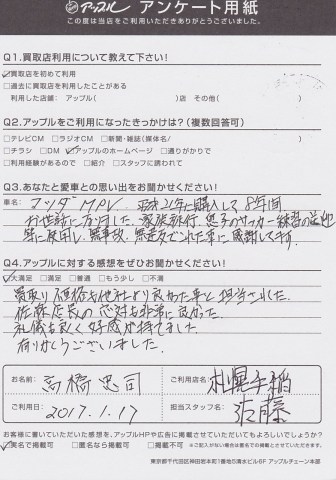 アップル アンケート用紙
この度は当店をご利用いただきありがとうございました。
Q1.買取店利用について教えて下さい!
☑買取店を初めて利用
□過去に買取店を利用したことがある
利用した店舗: アップル( )店 その他( )
Q2.アップルをご利用になったきっかけは?(複数回答可)
□テレビCM □ラジオCM □新聞・雑誌(媒体名/ )
□チラシ □DM ☑アップルのホームページ □通りがかりで
□利用経験があるので □紹介 □スタッフに誘われて
Q3.あなたと愛車との思い出をお聞かせください!
車名: マツダMPV 平成21年に購入して8年間
お世話になりました。家族旅行、息子のサッカー練習の送迎
等に使用し、無事故、無違反でこれた事に感謝してます。
Q4.アップルに対する感想をぜひお聞かせください!
☑大満足 □満足 □普通 □もう少し □不満
買取り価格も他社より良かった事と担当された
佐藤店長の応対も非常に良かった。
礼儀も良く好感が持てました。
ありがとうございました。
お名前: 高橋忠司
ご利用店名: 札幌手稲
ご利用日: 2017.1.17
担当スタッフ名: 佐藤
お客様に書いていただいた感想を、アップルHPや広告に掲載させていただいてもよろしいでしょうか?
☑実名で掲載可 □匿名なら掲載可 □掲載不可 ※ご記入がない場合は匿名での掲載とさせていただきます。
東京都千代田区神田岩本町1番地5清水ビル6F アップルチェーン本部